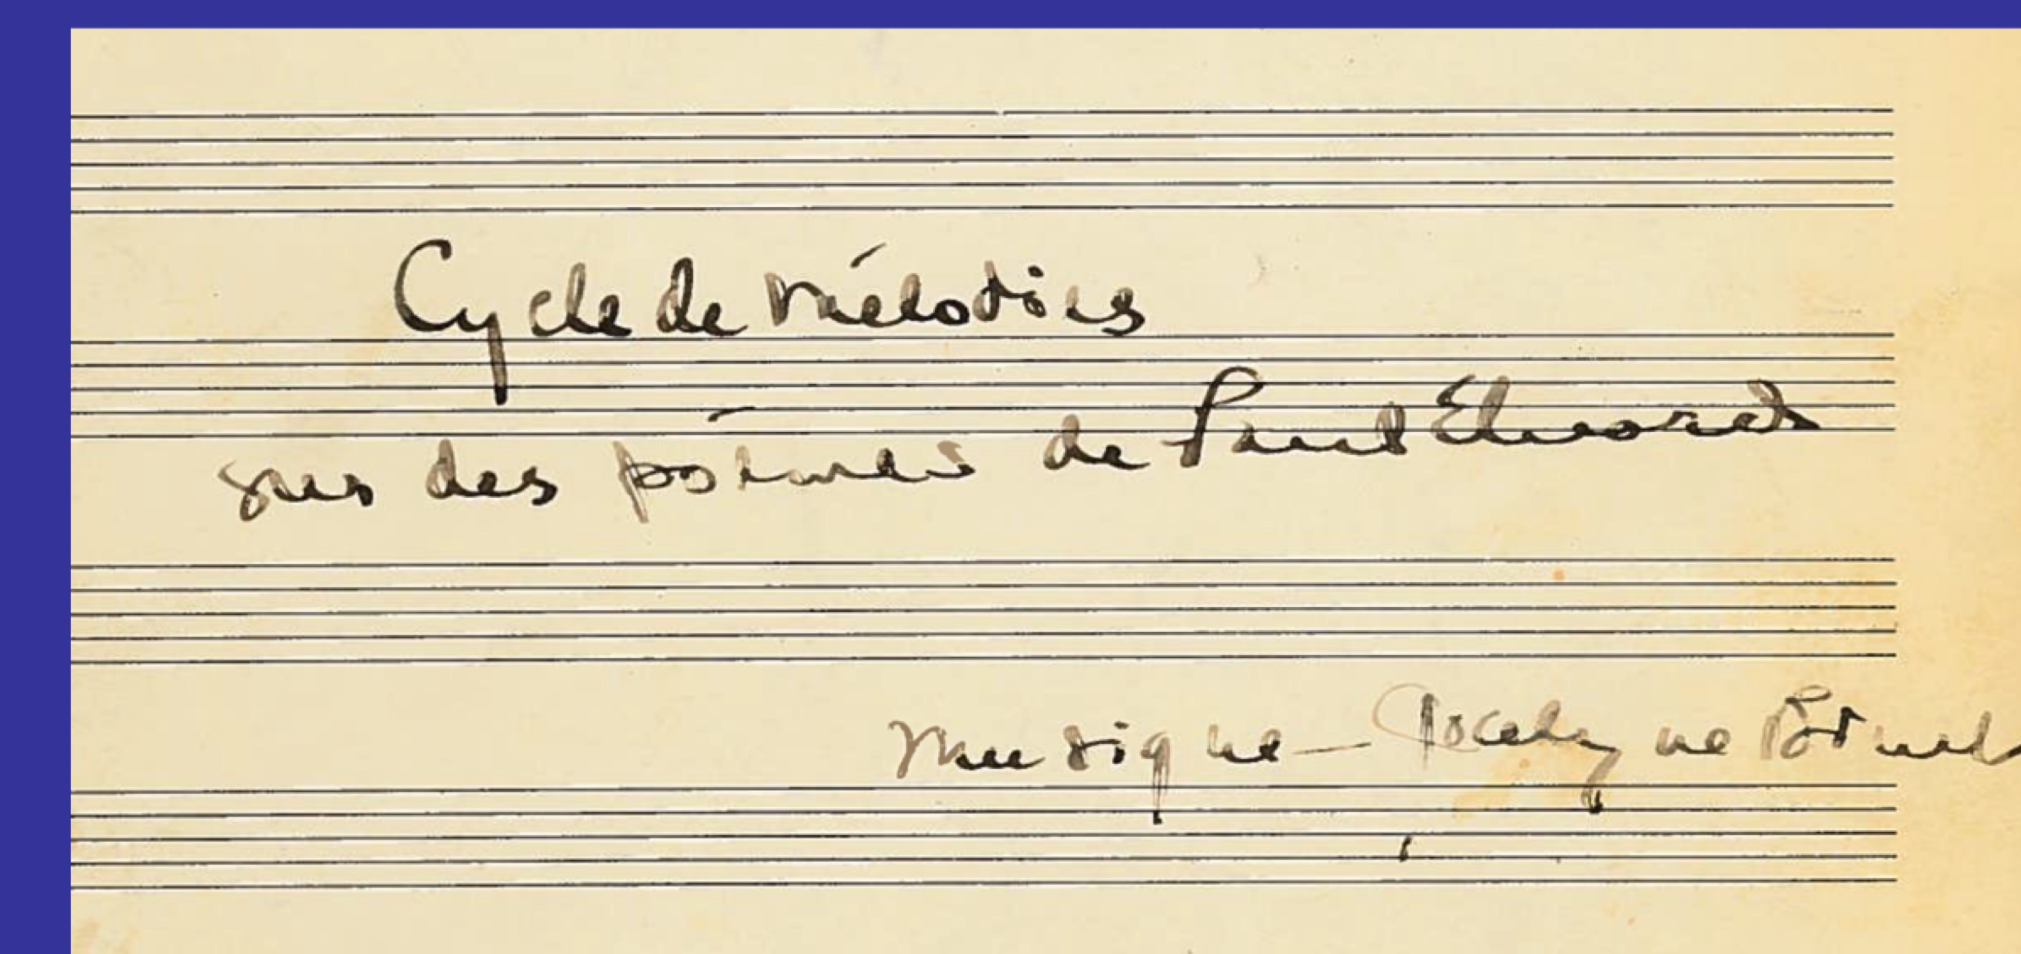 Cycle de mélodies
sur des poèmes de Paul Eluard
Musique - Jocelyne Binet